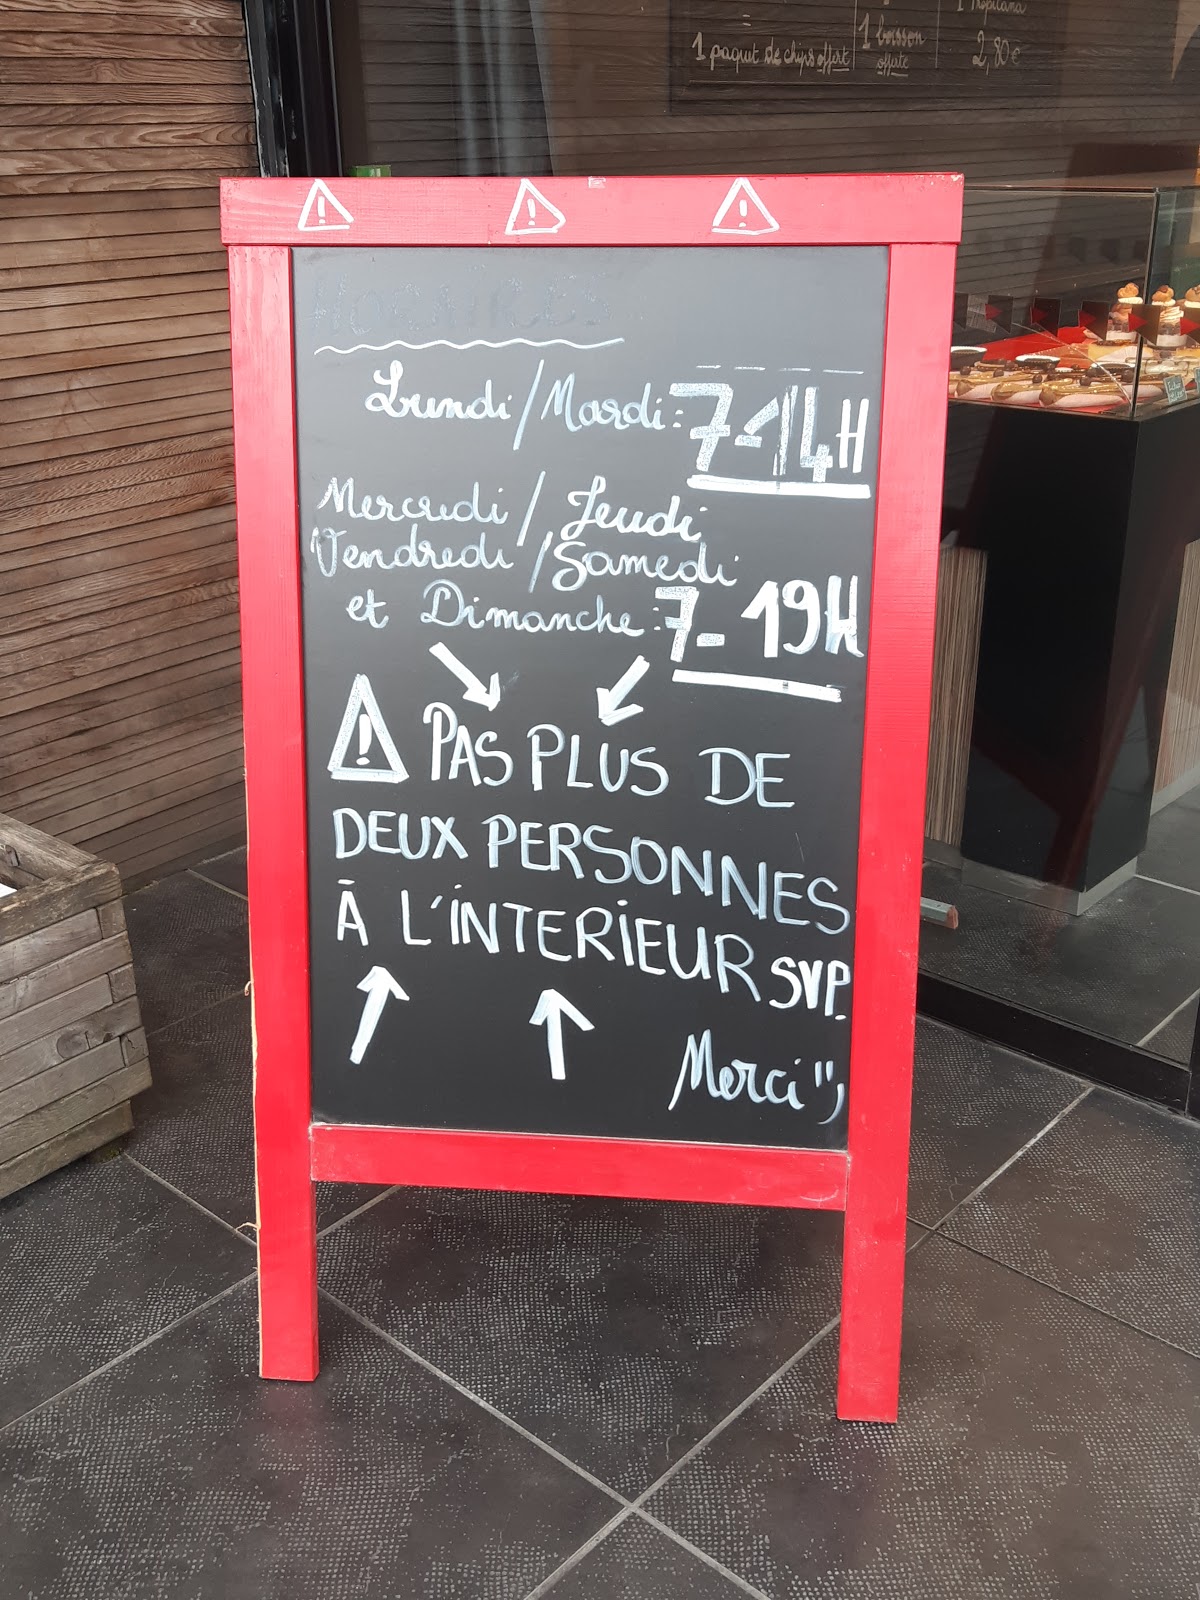 =
1 paquet de chips offert
1 boisson
offerte
1 Tropicana
2,80€
HORAIRES
Lundi/Mardi: 7-14H
Mercredi / Jeudi
Vendredi /Samedi
et Dimanche: 7-19H
! PAS PLUS DE
DEUX PERSONNES
À L'INTERIEUR SVP.
Merci ")